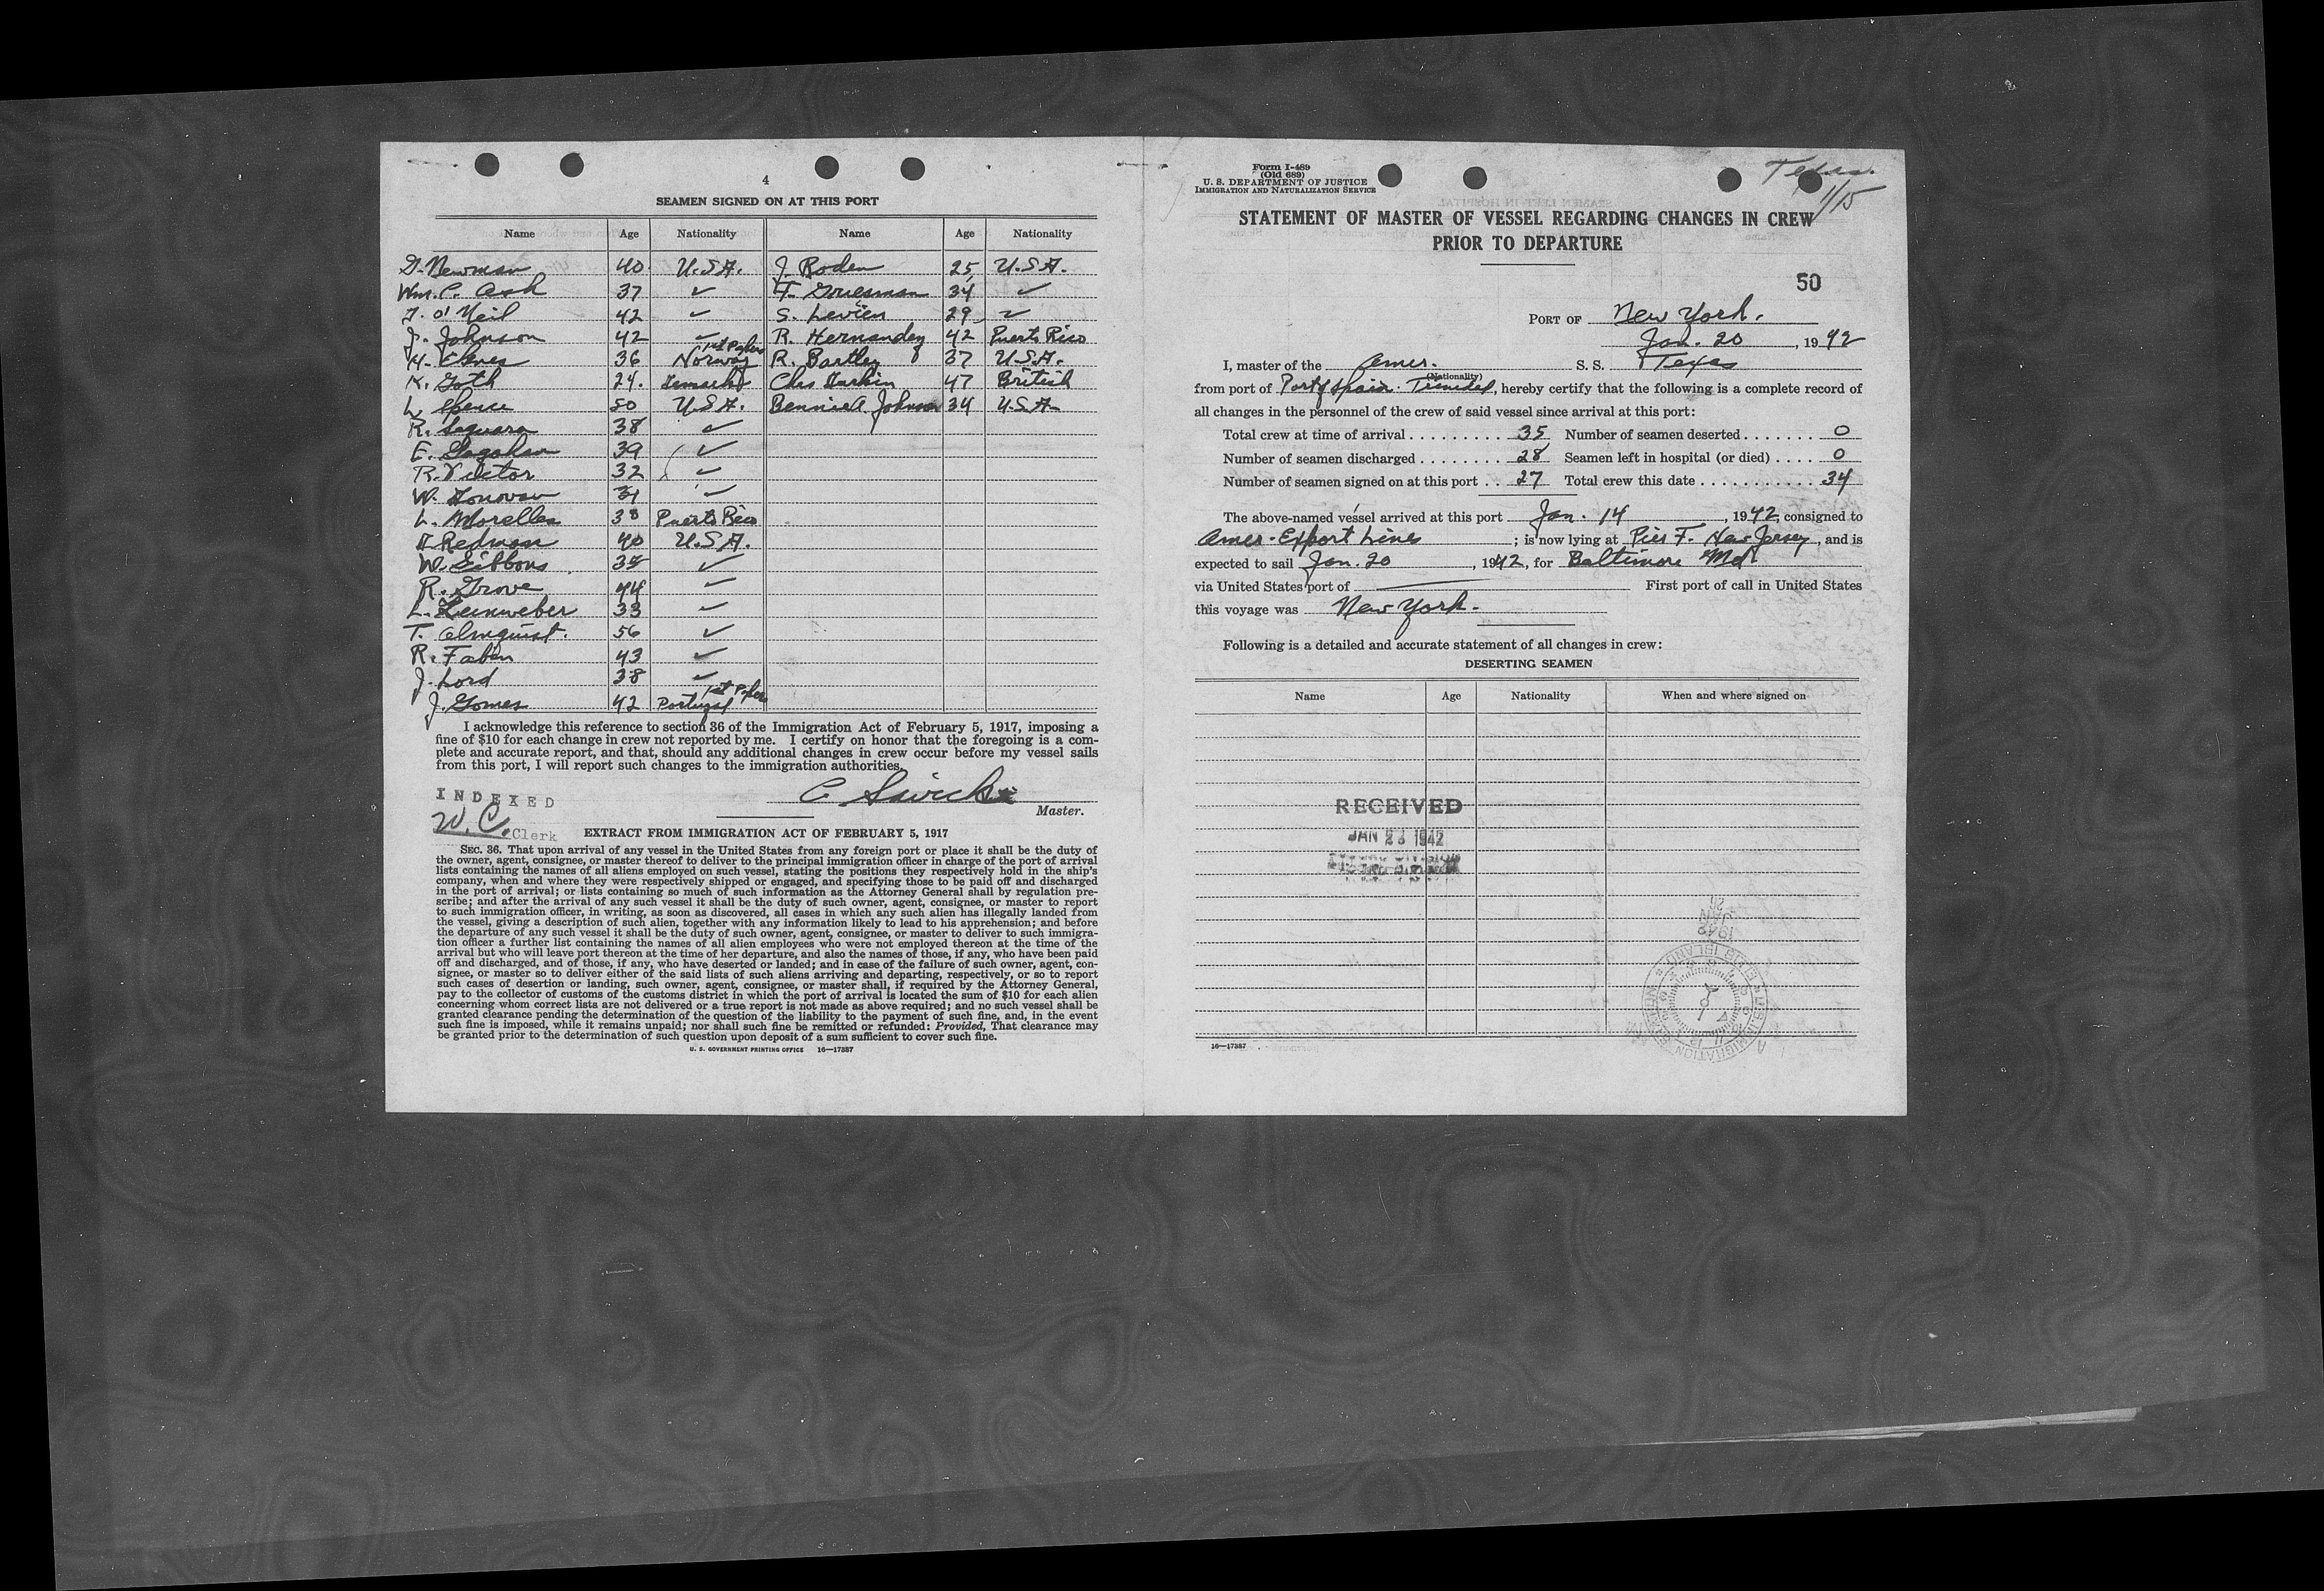 4
SEAMEN SIGNED ON AT THIS PORT
Name Age Nationality Name Age Nationality
D. Newman 40 U.S.A. J. Roden 25 U.S.A.
Wm. C. Ash 37 ✓ 34 ✓
T. O'Neil 42 ✓ S. Levien 29 ✓
J. Johnson 42 ✓ R. Hernandez 42 Puerto Rico
1st Papers
H. 36 Norway R. Bartley 37 U.S.A.
K. Goth 24. Denmark Chas Durkin 47 British
L. Spence 50 U.S.A. Bennie A. Johnson 34 U.S.A.
R. Seguara 38 ✓
E. Gagahan 39 ✓
R. Victor 32 ✓
W. Donovan 31 ✓
L. Morelles 38 Puerto Rico
Redmon 40 U.S.A.
W. Gibbons 35 ✓
R. Grove 44 ✓
L. Leinweber 33 ✓
T. Almquist. 56 ✓
R. Faben 43 ✓
J. Lord 38 ✓
1st Papers
J. Gomes 42 Portugal
I acknowledge this reference to section 36 of the Immigration Act of February 5, 1917, imposing a
fine of $10 for each change in crew not reported by me. I certify on honor that the foregoing is a com-
plete and accurate report, and that, should any additional changes in crew occur before my vessel sails
from this port, I will report such changes to the immigration authorities.
C.
Master.
INDEXED
W. C. Clerk
EXTRACT FROM IMMIGRATION ACT OF FEBRUARY 5, 1917
SEC. 36. That upon arrival of any vessel in the United States from any foreign port or place it shall be the duty of
the owner, agent, consignee, or master thereof to deliver to the principal immigration officer in charge of the port of arrival
lists containing the names of all aliens employed on such vessel, stating the positions they respectively hold in the ship's
company, when and where they were respectively shipped or engaged, and specifying those to be paid off and discharged
in the port of arrival; or lists containing so much of such information as the Attorney General shall by regulation pre-
scribe; and after the arrival of any such vessel it shall be the duty of such owner, agent, consignee, or master to report
to such immigration officer, in writing, as soon as discovered, all cases in which any such alien has illegally landed from
the vessel, giving a description of such alien, together with any information likely to lead to his apprehension; and before
the departure of any such vessel it shall be the duty of such owner, agent, consignee, or master to deliver to such immigra-
tion officer a further list containing the names of all alien employees who were not employed thereon at the time of the
arrival but who will leave port thereon at the time of her departure, and also the names of those, if any, who have been paid
off and discharged, and of those, if any, who have deserted or landed; and in case of the failure of such owner, agent, con-
signee, or master so to deliver either of the said lists of such aliens arriving and departing, respectively, or so to report
such cases of desertion or landing, such owner, agent, consignee, or master shall, if required by the Attorney General,
pay to the collector of customs of the customs district in which the port of arrival is located the sum of $10 for each alien
concerning whom correct lists are not delivered or a true report is not made as above required; and no such vessel shall be
granted clearance pending the determination of the question of the liability to the payment of such fine, and, in the event
such fine is imposed, while it remains unpaid; nor shall such fine be remitted or refunded: Provided, That clearance may
be granted prior to the determination of such question upon deposit of a sum sufficient to cover such fine.
U. S. GOVERNMENT PRINTING OFFICE 16—17387
Form I-489
(Old 689)
U. S. DEPARTMENT OF JUSTICE
IMMIGRATION AND NATURALIZATION SERVICE
Texas.
1/15
STATEMENT OF MASTER OF VESSEL REGARDING CHANGES IN CREW
PRIOR TO DEPARTURE
50
PORT OF New York.
Jan. 20, 1942
I, master of the Amer. S. S. Texas
(Nationality)
from port of Port of Spain. Trinidad, hereby certify that the following is a complete record of
all changes in the personnel of the crew of said vessel since arrival at this port:
Total crew at time of arrival . . . . . . . . . 35 Number of seamen deserted . . . . . . . 0
Number of seamen discharged . . . . . . . . 28 Seamen left in hospital (or died) . . . . 0
Number of seamen signed on at this port . . 27 Total crew this date . . . . . . . . . . . . 34
The above-named vessel arrived at this port Jan. 14, 1942, consigned to
Amer. Export Lines; is now lying at Pier F. New Jersey, and is
expected to sail Jan. 20, 1942, for Baltimore Md.
via United States port of First port of call in United States
this voyage was New York.
Following is a detailed and accurate statement of all changes in crew:
DESERTING SEAMEN
Name Age Nationality When and where signed on
RECEIVED
JAN 23 1942
26
JAN
1942
16—17387